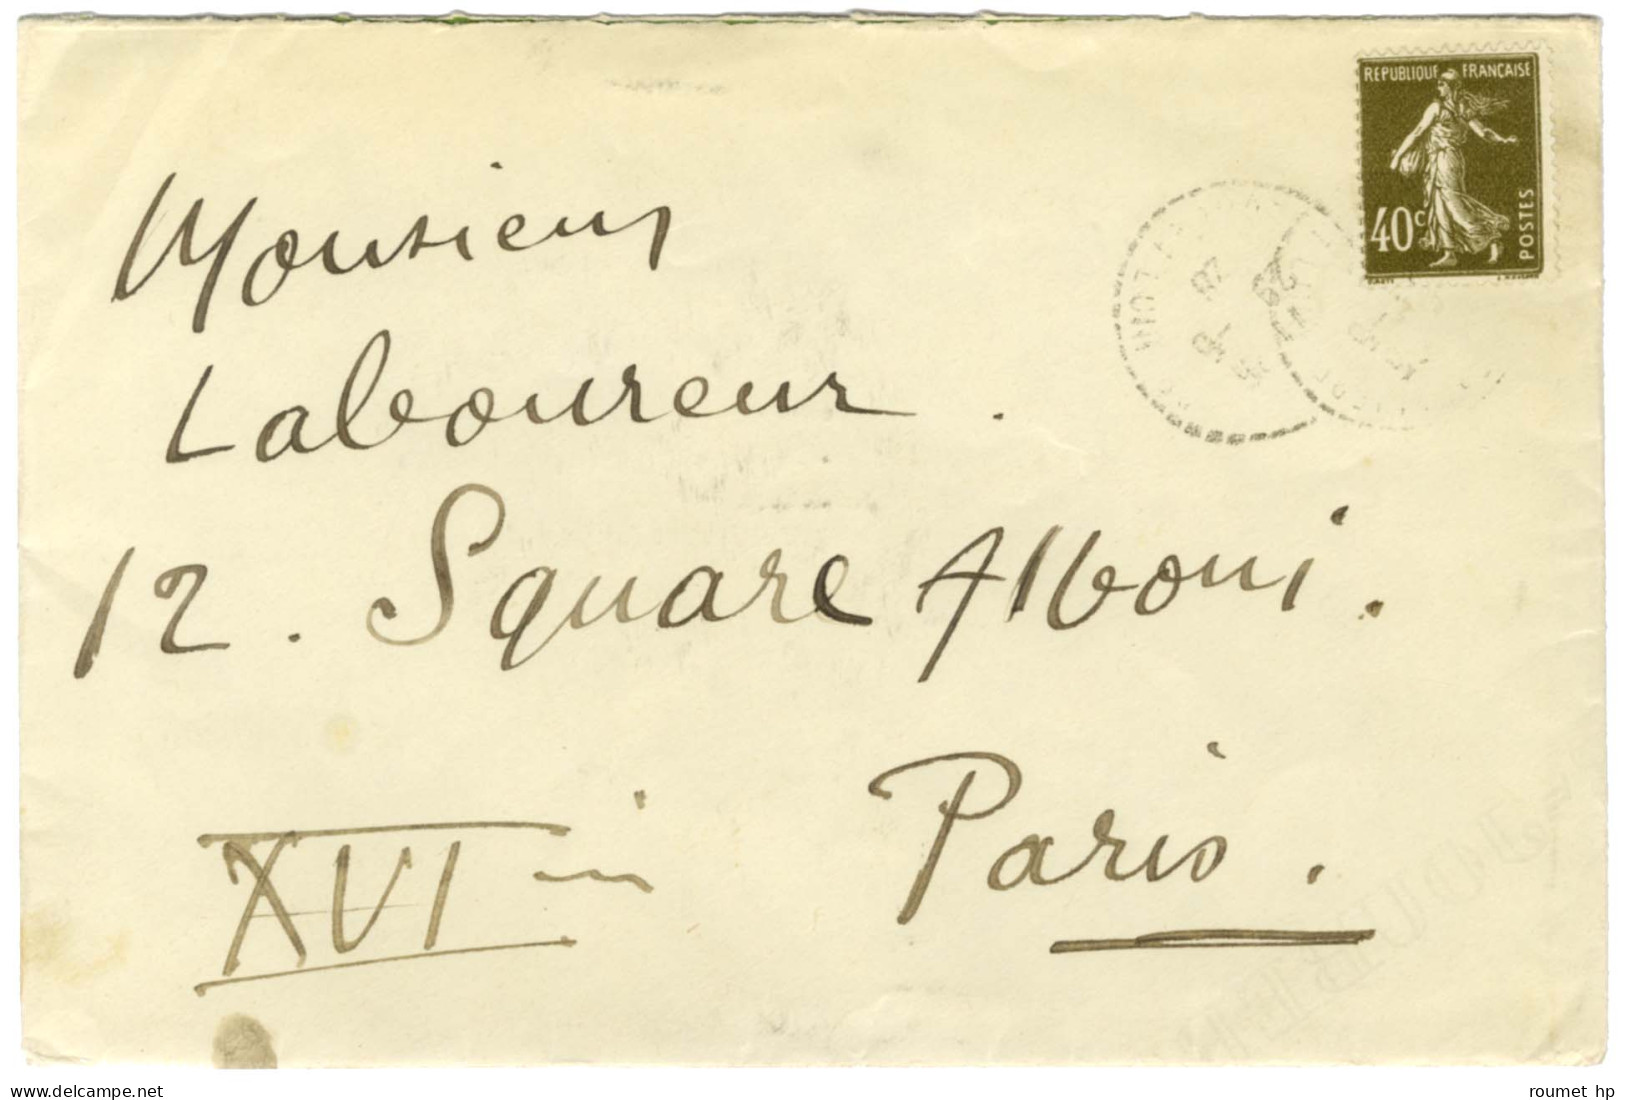 REPUBLIQUE FRANÇAISE
40c
POSTES
Monsieur
Laboureur.
12. Square Alboni.
XVI m
Paris.
www.delcampe.net
roumet hp